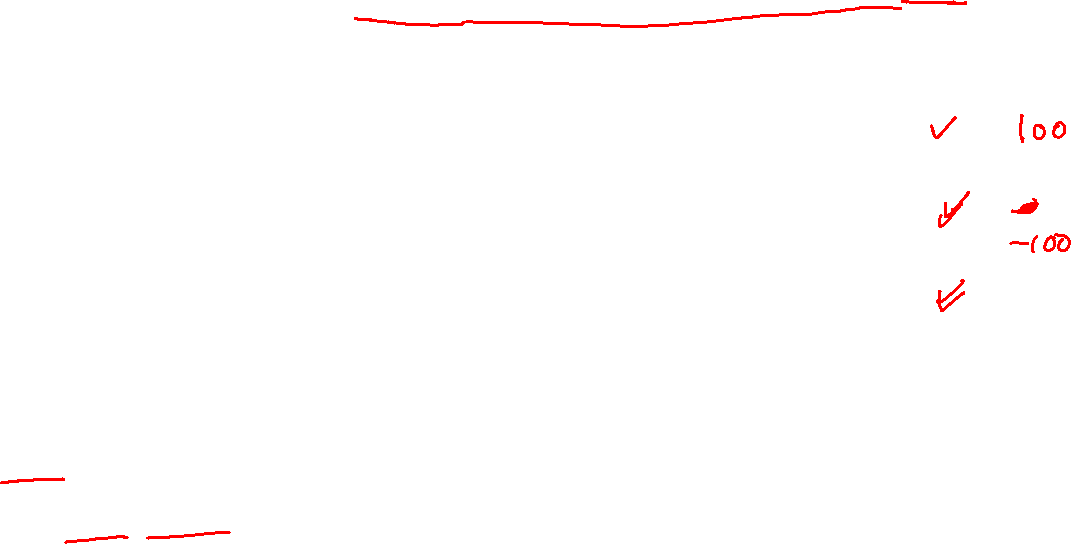 ✓ 100
✓
-100
✓